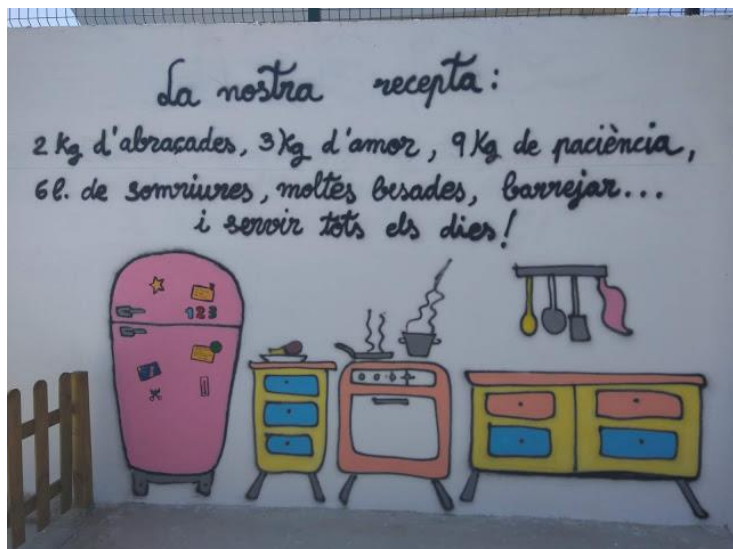 La nostra recepta:
2 Kg d'abraçades, 3 Kg d'amor, 9 Kg de paciència,
6 l. de somriures, moltes besades, barrejar...
i servir tots els dies!
123